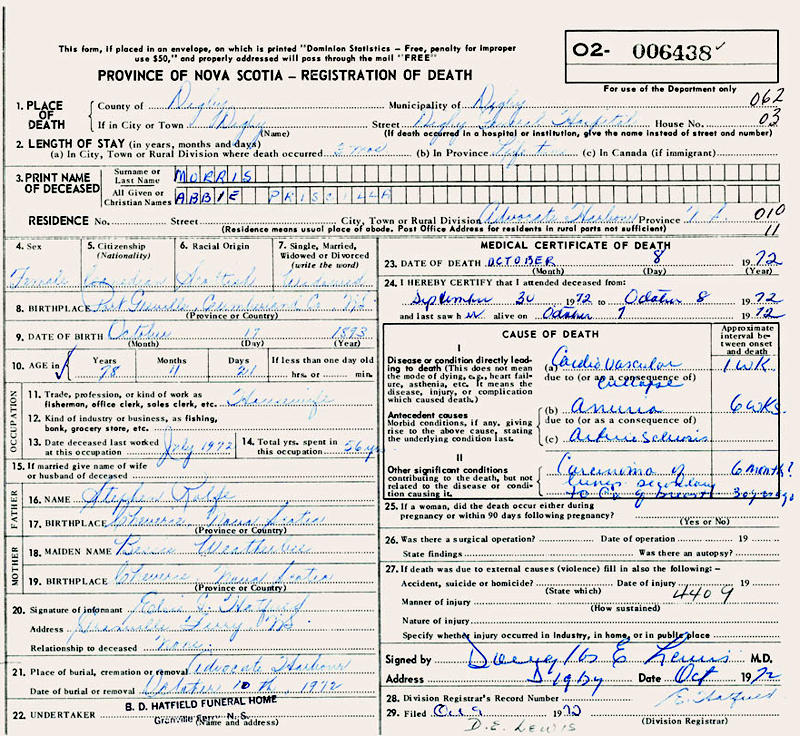 This form, if placed in an envelope, on which is printed "Dominion Statistics — Free, penalty for improper
use $50," and properly addressed will pass through the mail "FREE"
PROVINCE OF NOVA SCOTIA — REGISTRATION OF DEATH
O2- 006438 ✓
For use of the Department only
062
03
1. PLACE OF DEATH { County of Digby Municipality of Digby
If in City or Town Digby (Name) Street Digby General Hospital House No.
(If death occurred in a hospital or institution, give the name instead of street and number)
2. LENGTH OF STAY (in years, months and days)
(a) In City, Town or Rural Division where death occurred 2 mos (b) In Province Life time (c) In Canada (if immigrant)
3. PRINT NAME OF DECEASED { Surname or Last Name MORRIS
All Given or Christian Names ABBIE PRISCILLA
RESIDENCE No. Street City, Town or Rural Division Advocate Harbour Province N.S. 010
11
(Residence means usual place of abode. Post Office Address for residents in rural parts not sufficient)
4. Sex
Female
5. Citizenship (Nationality)
Canadian
6. Racial Origin
Scottish
7. Single, Married, Widowed or Divorced (write the word)
Widowed
8. BIRTHPLACE Port Greville, Cumberland Co., N.S.
(Province or Country)
9. DATE OF BIRTH October 17 1893
(Month) (Day) (Year)
10. AGE in Years 78 Months 11 Days 21 If less than one day old hrs. or min.
OCCUPATION
11. Trade, profession, or kind of work as fisherman, office clerk, sales clerk, etc. Housewife
12. Kind of industry or business, as fishing, bank, grocery store, etc.
13. Date deceased last worked at this occupation July 1972 14. Total yrs. spent in this occupation 56 yrs
15. If married give name of wife or husband of deceased
FATHER
16. NAME Stephen Rolfe
17. BIRTHPLACE Nova Scotia
(Province or Country)
MOTHER
18. MAIDEN NAME Weatherbee
19. BIRTHPLACE Nova Scotia
(Province or Country)
20. Signature of informant Hatfield
Address Granville Ferry, N.S.
Relationship to deceased None
21. Place of burial, cremation or removal Advocate Harbour
Date of burial or removal October 10th, 1972
22. UNDERTAKER B. D. HATFIELD FUNERAL HOME
Granville Ferry, N. S.
(Name and address)
MEDICAL CERTIFICATE OF DEATH
23. DATE OF DEATH OCTOBER 8 1972
(Month) (Day) (Year)
24. I HEREBY CERTIFY that I attended deceased from:
September 30 1972 to October 8 1972
and last saw her alive on October 7 1972
CAUSE OF DEATH
Approximate interval between onset and death
I
Disease or condition directly leading to death (This does not mean the mode of dying, e.g., heart failure, asthenia, etc. It means the disease, injury, or complication which caused death.)
(a) Cardio Vascular Collapse 1 WK
due to (or as a consequence of)
Antecedent causes
Morbid conditions, if any, giving rise to the above cause, stating the underlying condition last.
(b) Anemia 6 WKS
due to (or as a consequence of)
(c) Arterio Sclerosis
II
Other significant conditions contributing to the death, but not related to the disease or condition causing it.
Carcinoma of lungs secondary to Ca of breast 6 months? 30 yrs ago
25. If a woman, did the death occur either during pregnancy or within 90 days following pregnancy?
(Yes or No)
26. Was there a surgical operation? Date of operation 19
State findings Was there an autopsy?
27. If death was due to external causes (violence) fill in also the following:—
Accident, suicide or homicide? Date of injury 19
(State which)
4409
Manner of injury
(How sustained)
Nature of injury
Specify whether injury occurred in industry, in home, or in public place
Signed by Douglas E Lewis M.D.
Address Digby Date Oct 1972
28. Division Registrar's Record Number
29. Filed Oct 9 1972 E. Hatfield
(Division Registrar)
D.E. LEWIS